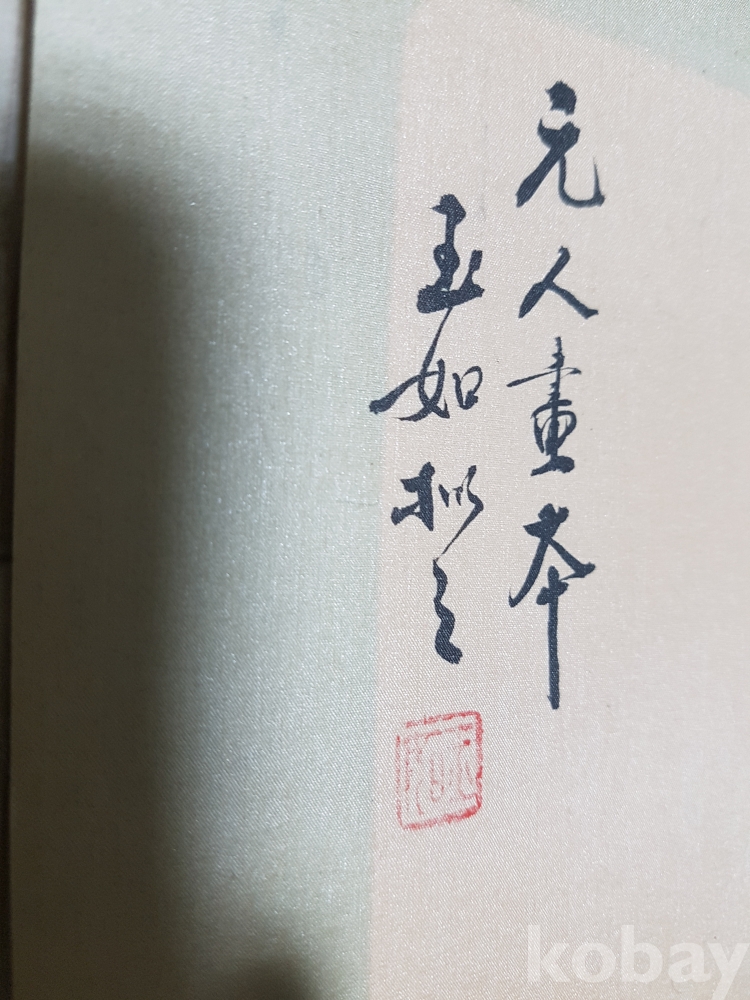 元人畫本
玉如拟之
kobay